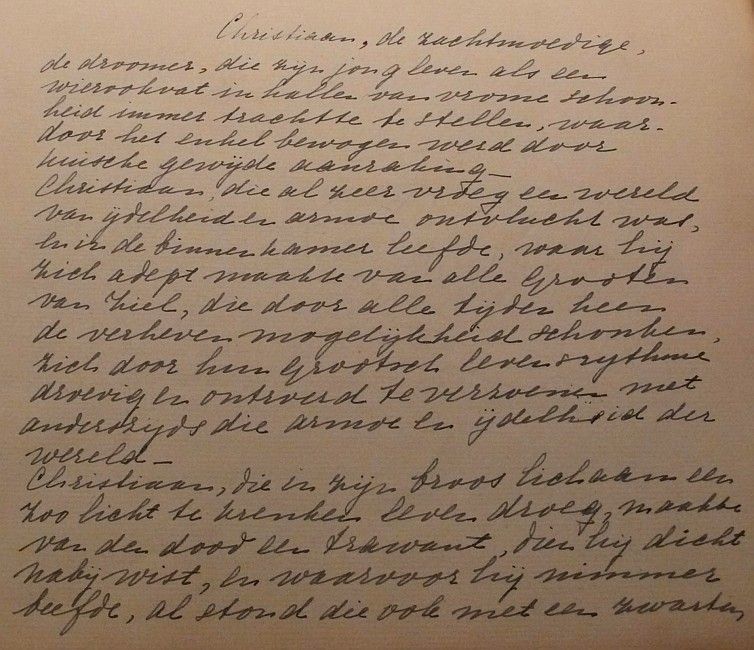 Christiaan, de zachtmoedige,
de droomer, die zijn jong leven als een
wierookvat in hallen van vrome schoon-
heid immer trachtte te stellen, waar-
door het enkel bewogen werd door
kuische gewijde aanraking_
Christiaan, die al zeer vroeg een wereld
van ijdelheid en armoe ontvlucht was,
en in de binnenkamer leefde, waar hij
zich adept maakte van alle Grooten
van Ziel, die door alle tijden heen
de verheven mogelijkheid schonken,
zich door hun Grootsch levensrythme
droevig en ontroerd te verzoenen met
anderzijds die armoe en ijdelheid der
wereld_
Christiaan, die in zijn broos lichaam een
zoo licht te krenken leven droeg, maakte
van den dood een trawant, dien hij dicht
nabij wist, en waarvoor hij nimmer
beefde, al stond die ook met een zwarten